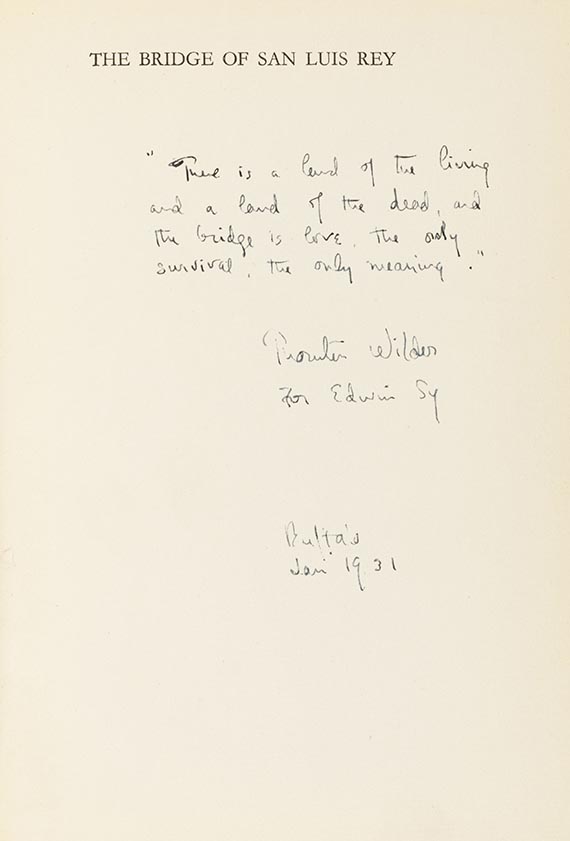 THE BRIDGE OF SAN LUIS REY
" There is a land of the living
and a land of the dead, and
the bridge is love, the only
survival, the only meaning."
Thornton Wilder
For Edwin Sy
Jan 1931